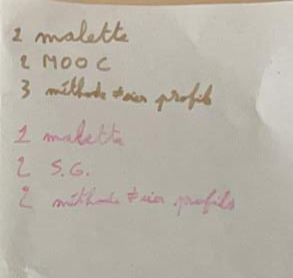 1 malette
2 MOOC
3 méthode ≠cier profils
1 malette
2 S.G.
2 méthode ≠cier profils